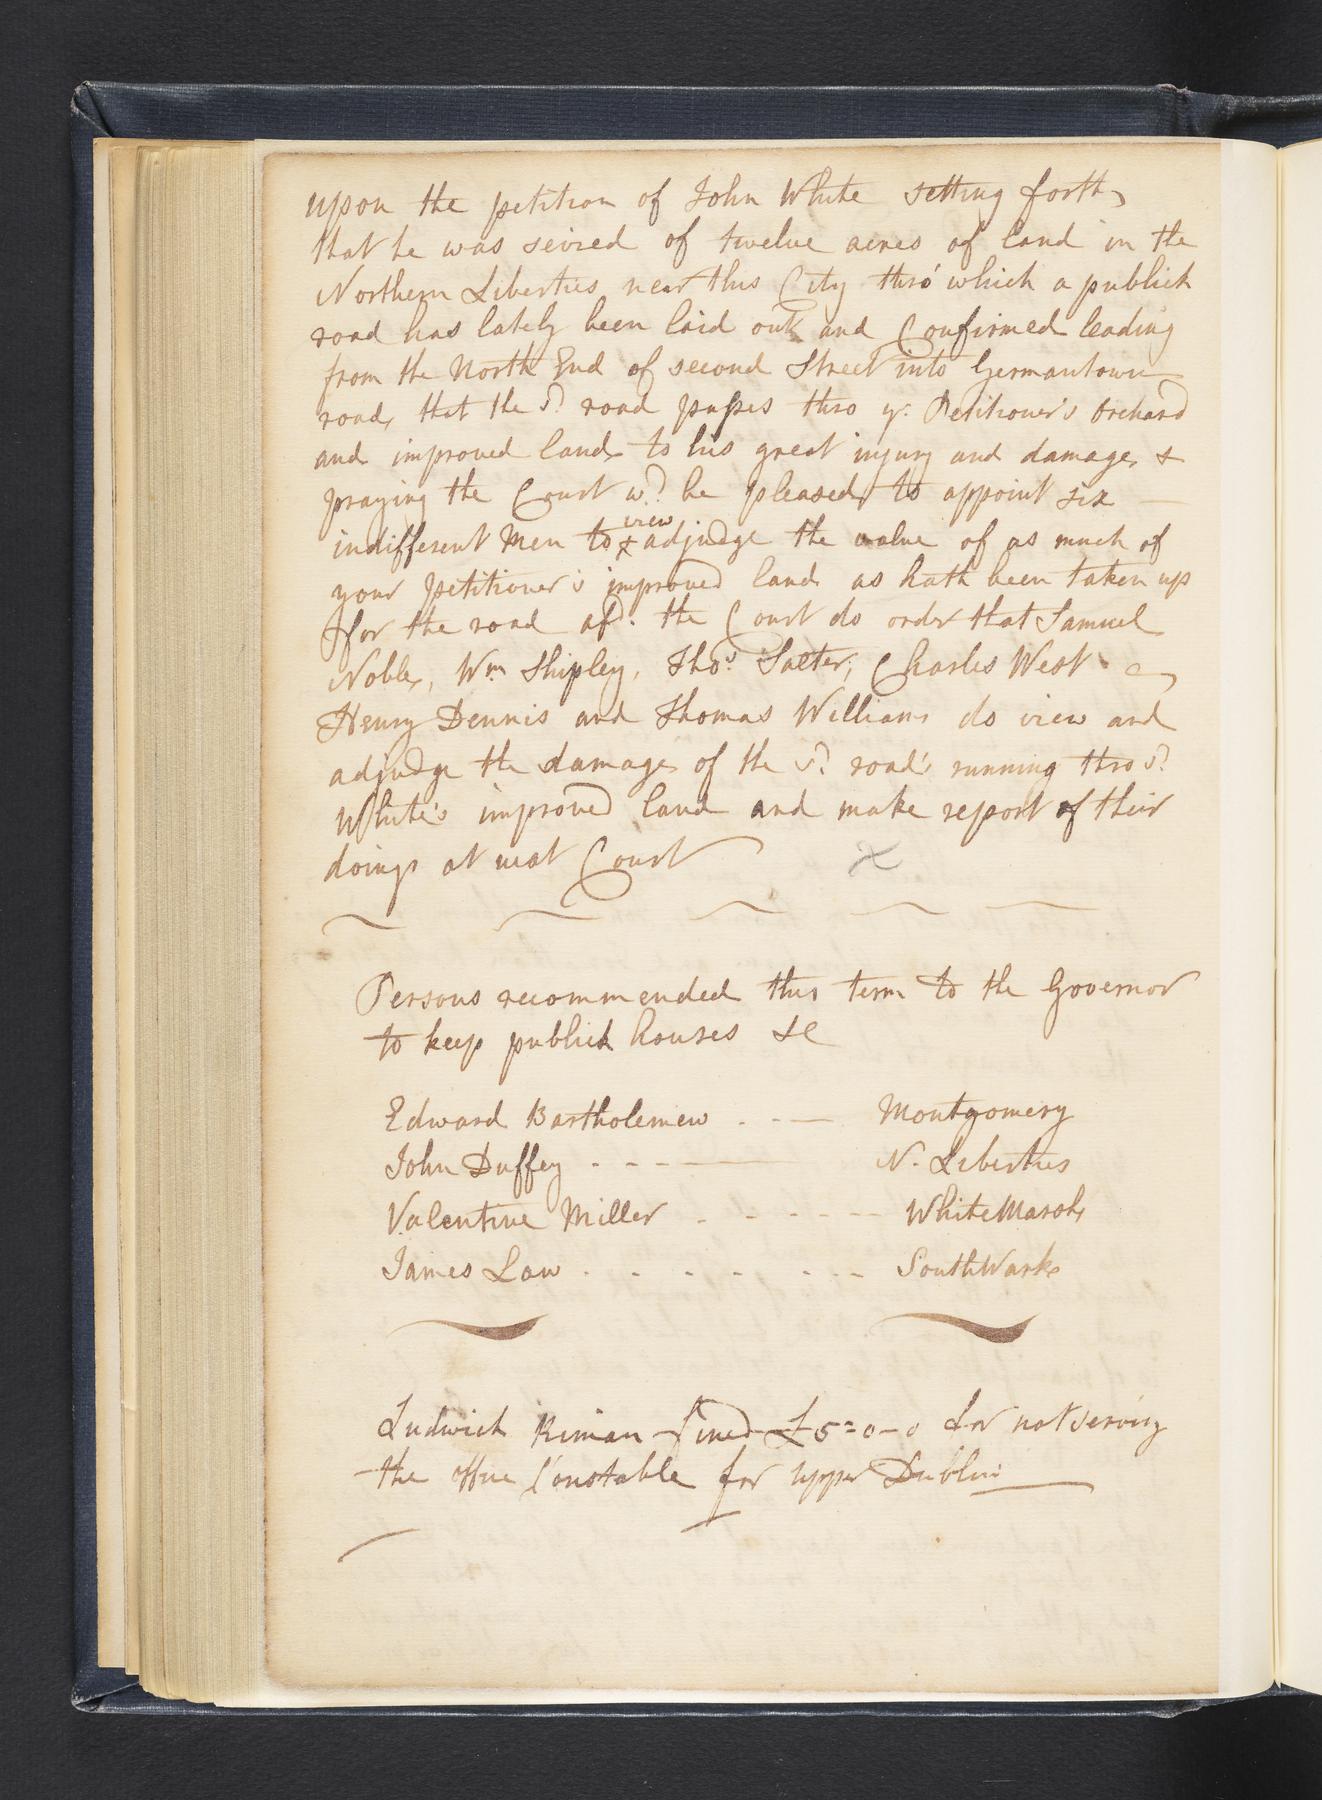 upon the petition of John White setting forth
that he was seized of twelve acres of land in the
Northern Liberties near this City thro' which a publick
road has lately been laid out and Confirmed leading
from the North End of second Street into Germantown
road, that the sd. road passes thro ye. Petitioner's Orchard
and improved land to his great injury and damage, &
praying the Court wd. be pleased to appoint six
indifferent Men to view & adjudge the value of as much of
your petitioner's improved land as hath been taken up
for the road afd. the Court do order that Samuel
Noble, Wm Shipley, Thos. Salter, Charles West
Henry Dennis and Thomas Williams do view and
adjudge the damage of the sd. road's running thro sd.
White's improved land and make report of their
doings at next Court
Persons recommended this term to the Governor
to keep publick houses &c
Edward Bartholemew - - - Montgomery
John Duffey - - - - N. Liberties
Valentine Miller - - - - - - White Marsh
James Law - - - - - - - SouthWark
Ludwick Riman fined £5=0-0 for not serving
the office Constable for Upper Dublin